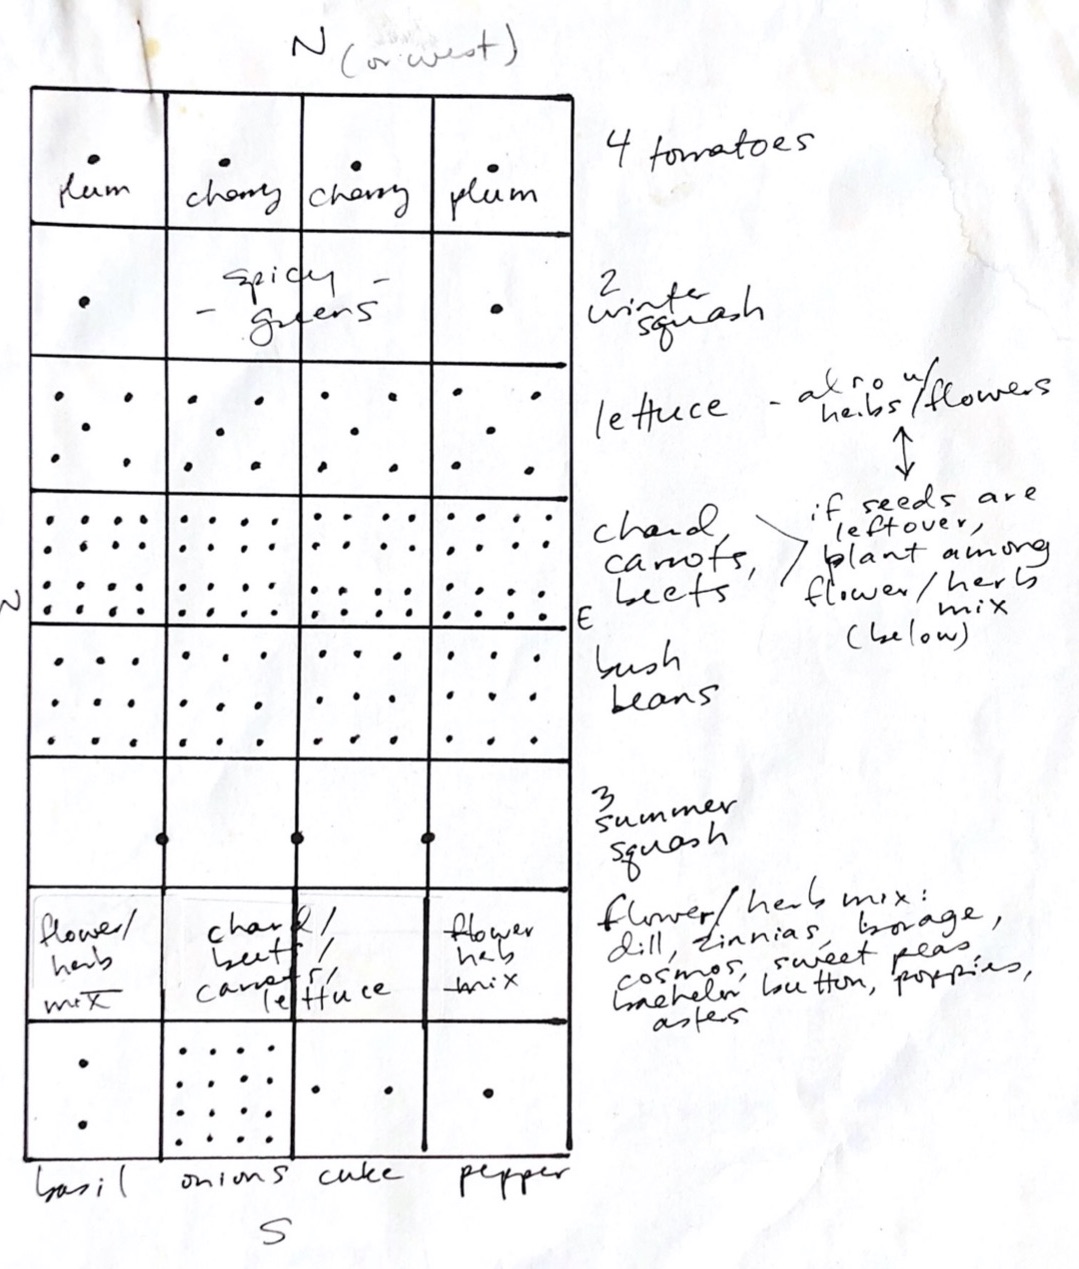 N
(or west)
plum cherry cherry plum
4 tomatoes
- spicy -
greens
2
winter
squash
lettuce - also w/
herbs/flowers
chard,
carrots,
beets
if seeds are
leftover,
plant among
flower/herb
mix
(below)
E
bush
beans
3
summer
squash
flower/
herb
mix
chard/
beets/
carrots/
lettuce
flower
herb
mix
flower/herb mix:
dill, zinnias, borage,
cosmos, sweet peas
bachelor button, poppies,
asters
basil onions cuke pepper
S